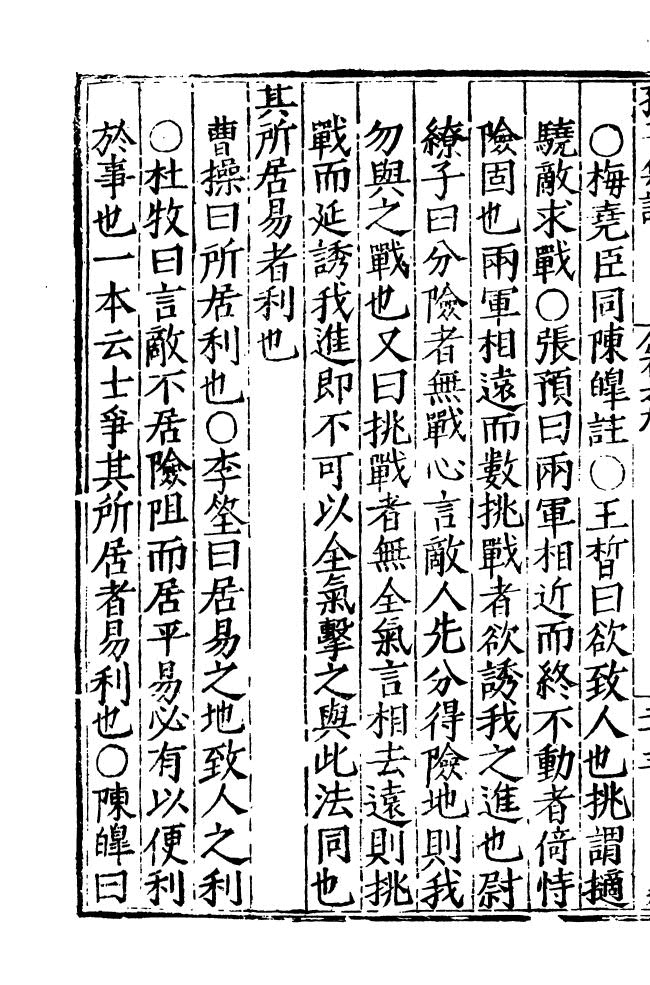 ○梅堯臣同陳皥註○王晳曰欲致人也挑謂擿
驍敵求戰○張預曰兩軍相近而終不動者倚恃
險固也兩軍相遠而數挑戰者欲誘我之進也尉
繚子曰分險者無戰心言敵人先分得險地則我
勿與之戰也又曰挑戰者無全氣言相去遠則挑
戰而延誘我進即不可以全氣擊之與此法同也
其所居易者利也
曹操曰所居利也○李筌曰居易之地致人之利
○杜牧曰言敵不居險阻而居平易必有以便利
於事也一本云士爭其所居者易利也○陳皥曰